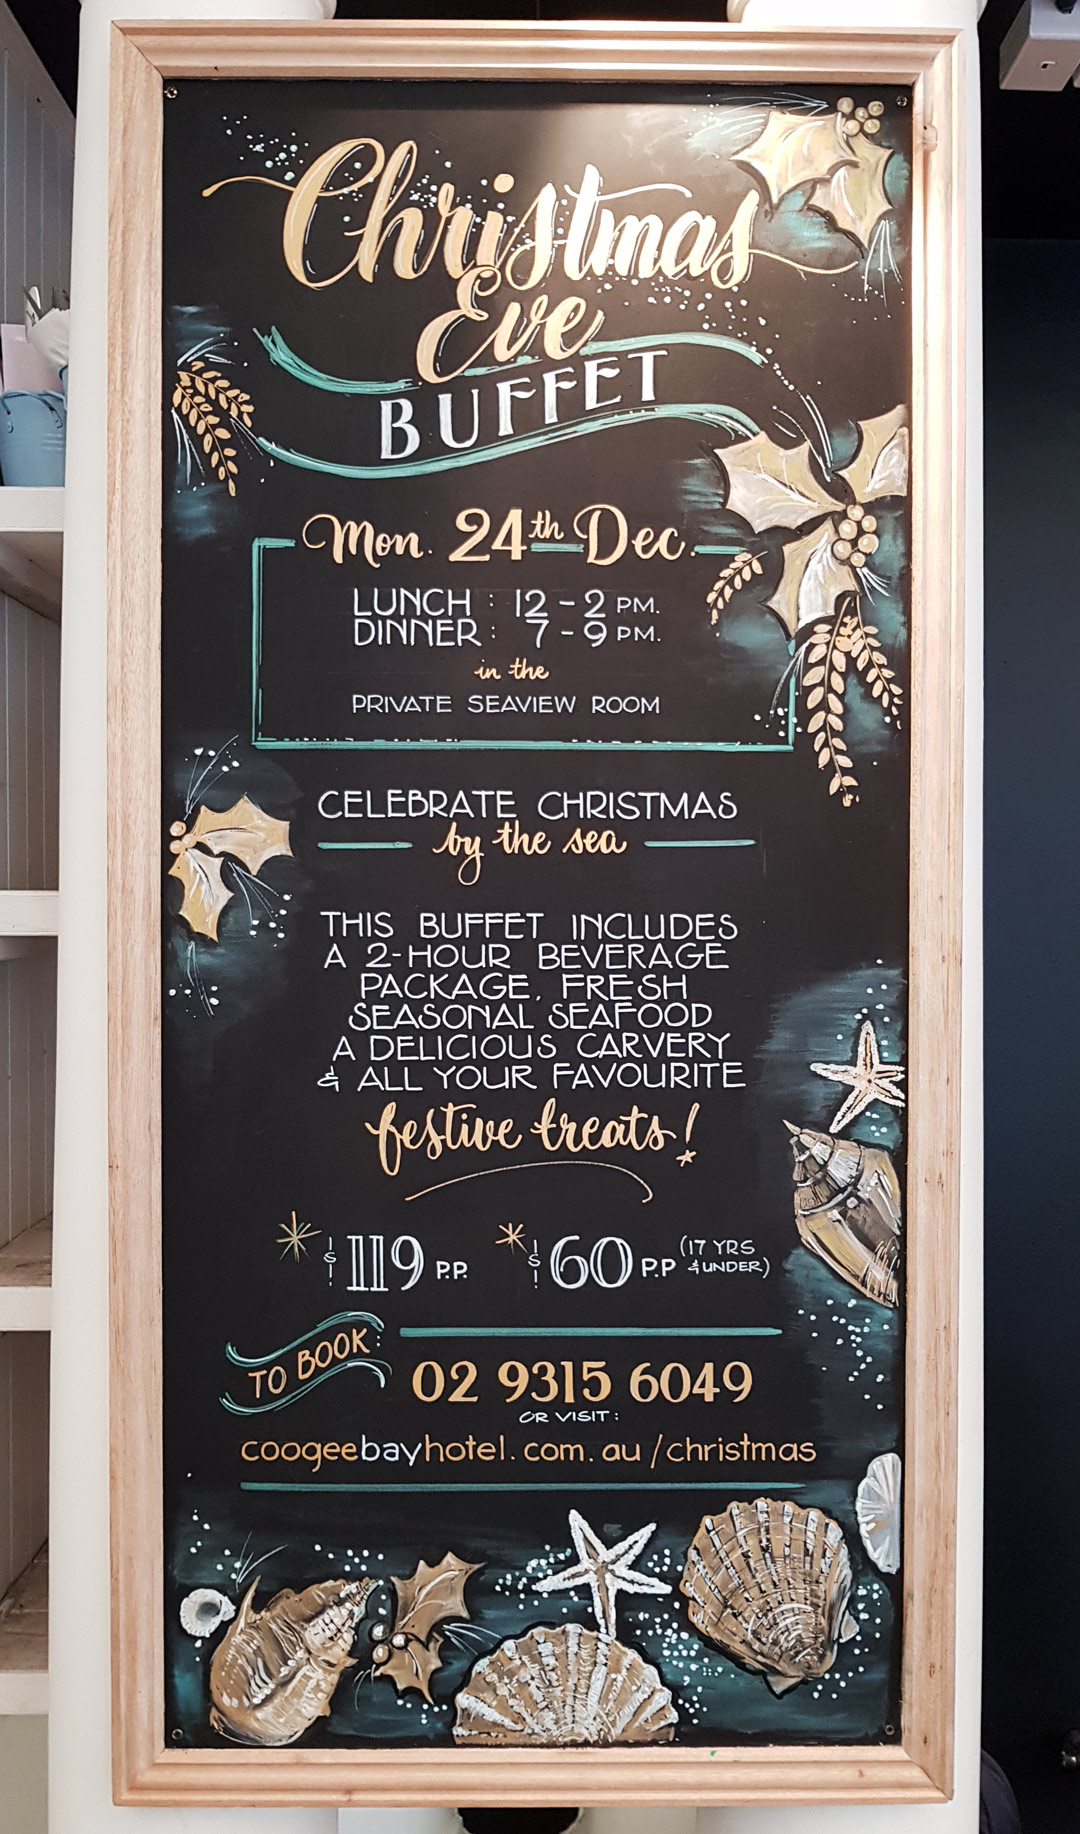 Christmas
Eve
BUFFET
Mon. 24th Dec.
LUNCH : 12 - 2 PM.
DINNER : 7 - 9 PM.
in the
PRIVATE SEAVIEW ROOM
CELEBRATE CHRISTMAS
by the sea
THIS BUFFET INCLUDES
A 2-HOUR BEVERAGE
PACKAGE, FRESH
SEASONAL SEAFOOD
A DELICIOUS CARVERY
& ALL YOUR FAVOURITE
festive treats!
$119 P.P. $60 P.P (17 YRS & UNDER)
TO BOOK: 02 9315 6049
OR VISIT:
coogeebayhotel.com.au/christmas